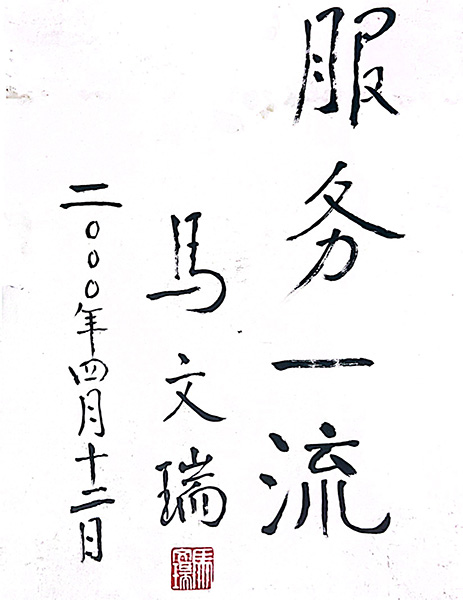 服务一流
馬文瑞
二〇〇〇年四月十二日